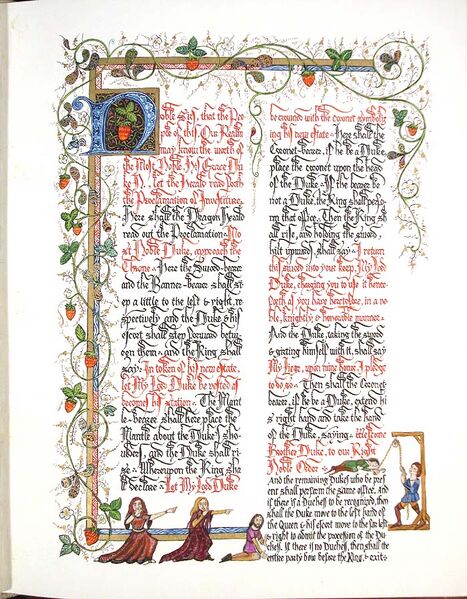 Noble Sirs, that the Peo-
ple of this Our Realm
may know the worth of
the Most Noble, his Grace Du-
ke N., let the Herald read forth
the Proclamation of Investiture.
Here shall the Dragon Herald
read out the Proclamation~Mo-
st Noble Duke, approach the
Throne~Here the Sword-bearer
and the Banner-bearer shall st-
ep a little to the left & right, re-
spectively, and the Duke & his
escort shall step forward betw-
een them~and the King shall
say~In token of his new estate,
let My Lord Duke be vested as
becomes his station. The Mant-
le-bearer shall here place the
Mantle about the Duke's sho-
ulders, and the Duke shall ri-
se. Whereupon the King sha-
ll declare~Let My Lord Duke
be crowned with the coronet symboliz-
ing his new estate~Here shall the
Coronet-bearer, if he be a Duke,
place the coronet upon the head
of the Duke~If the bearer be
not a Duke, the King shall perfo-
rm that office. Then the King sh-
all rise, and holding the sword
hilt upward, shall say~I return
this sword into your keep, My Lord
Duke, charging you to use it hence-
forth as you have heretofore, in a no-
ble, knightly, & honourable manner~
And the Duke, taking the sword
& girting himself with it, shall say
My Liege, upon mine honor, I pledge
to do so~Then shall the Coronet-
bearer, if he be a Duke, extend hi-
s right hand and take the hand
of the Duke, saying~Welcome
Brother Duke, to our Right
Noble Order~
And the remaining Dukes who be pres-
ent shall perform the same office. And
if there is a Duchess to be recognized, then
shall the Duke move to the left hand of
the Queen & his escort move to the far left
& right to admit the procession of the Du-
chess. If there is no Duchess, then shall the
entire party bow before the King, & exit~